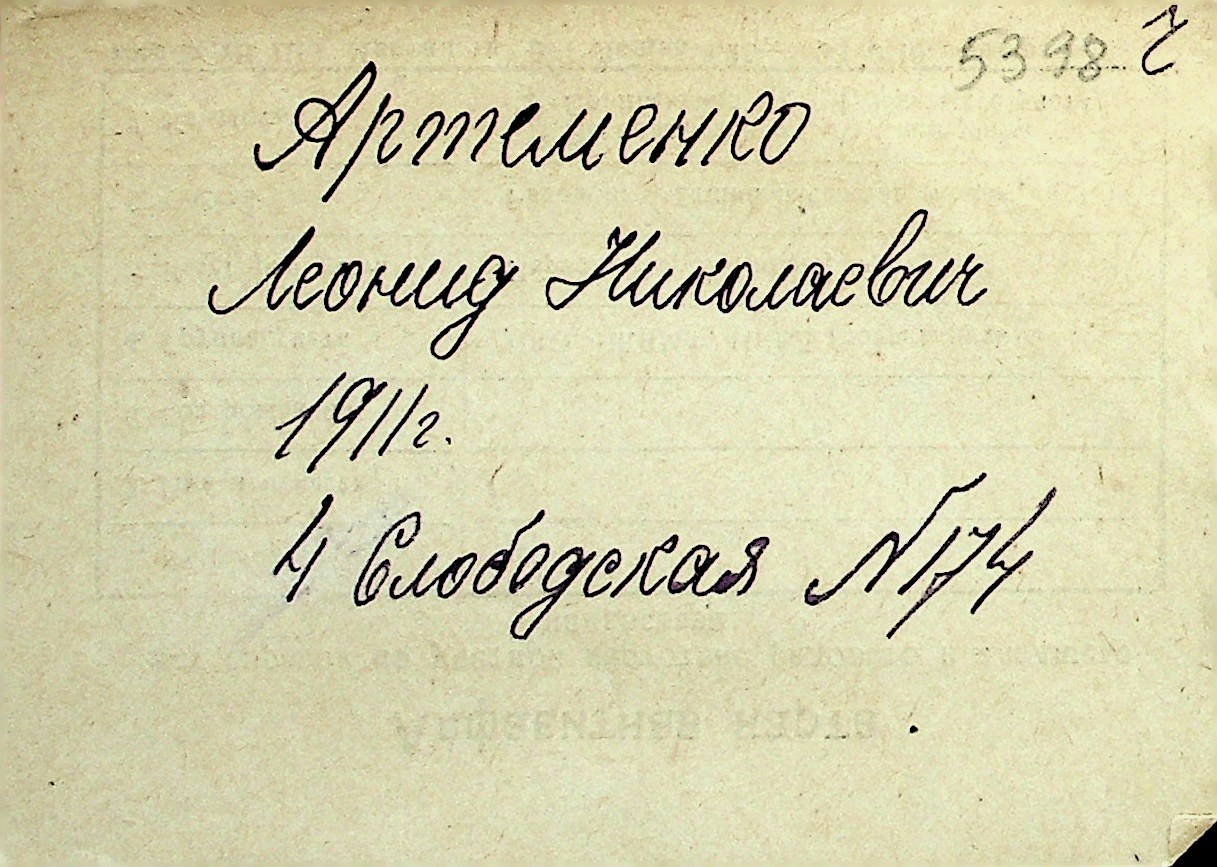 5398 ч
Артеменко
Леонид Николаевич
1911г.
4 Слободская №174